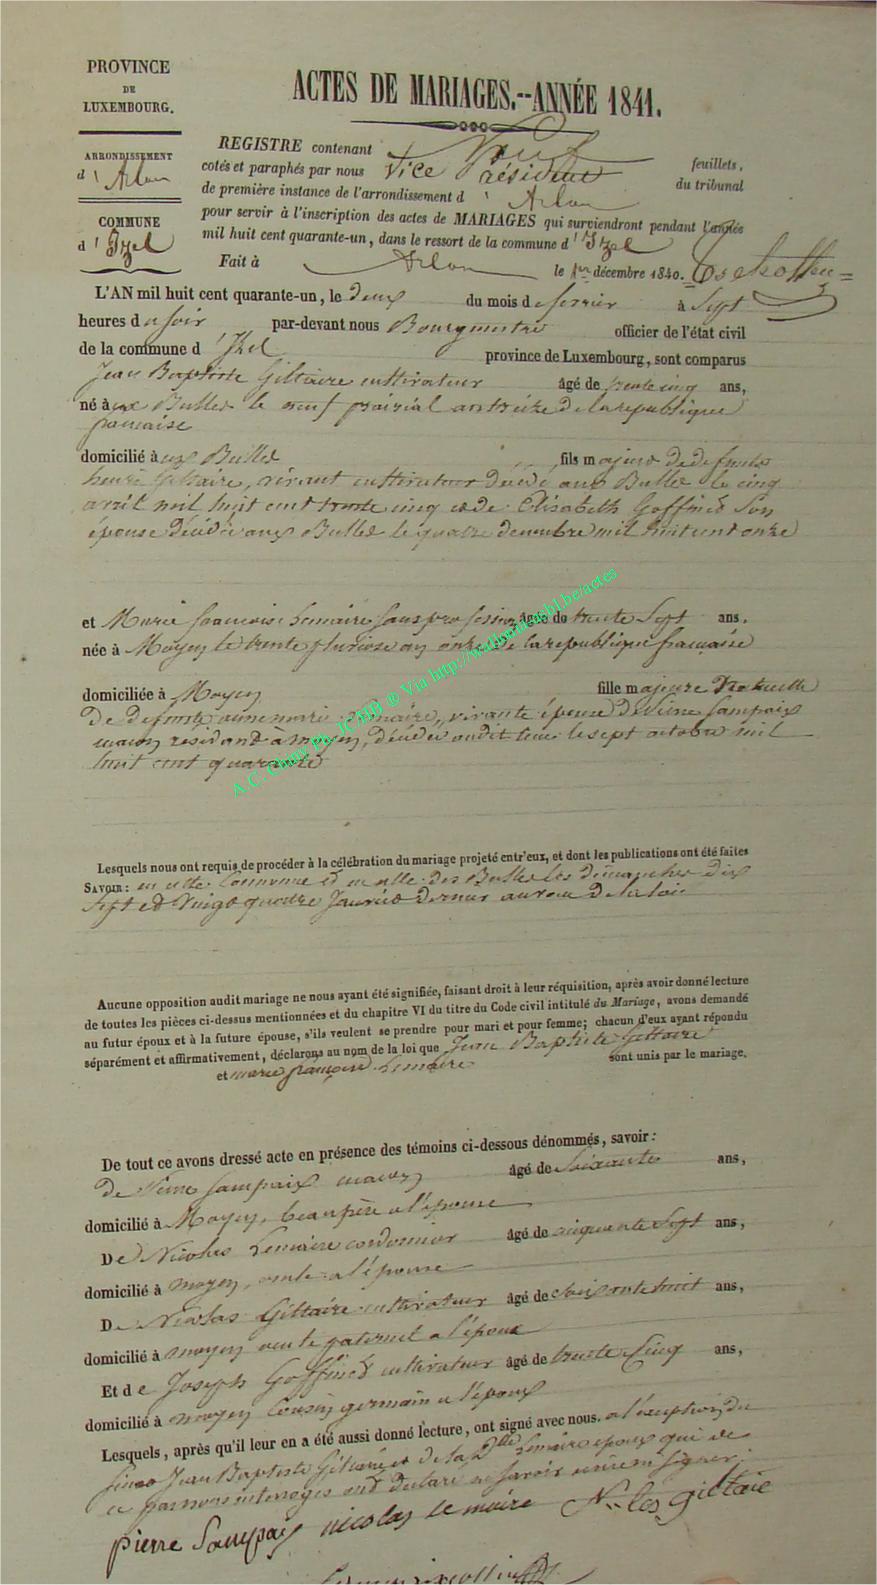 PROVINCE
DE
LUXEMBOURG.
ARRONDISSEMENT
d'Arlon
COMMUNE
d'Izel
ACTES DE MARIAGES.--ANNÉE 1841.
REGISTRE contenant feuillets,
cotés et paraphés par nous Vice Président du tribunal
de première instance de l'arrondissement d'Arlon
pour servir à l'inscription des actes de MARIAGES qui surviendront pendant l'année
mil huit cent quarante-un, dans le ressort de la commune d'Izel
Fait à Arlon le 1er décembre 1840.
L'AN mil huit cent quarante-un, le deux du mois de fevrier à Sept
heures du soir par-devant nous Bourgmestre officier de l'état civil
de la commune d'Izel province de Luxembourg, sont comparus
Jean Baptiste Giltaire cultivateur âgé de trente cinq ans,
né à aux Bulles le neuf prairial an treize de la republique
francaise
domicilié à aux Bulles fils majeur de defunts
henri Giltaire, vivant cultivateur décédé aux Bulles le cinq
avril mil huit cent trente cinq et de Elisabeth Goffinet Son
épouse décédée aux Bulles le quatre decembre mil huit cent onze
et Marie francoise Lemaire Sans profession âgée de trente Sept ans.
née à Moyen le trente pluviose an onze de la republique française
domiciliée à Moyen fille majeure Naturelle
de defunte anne marie Lemaire, vivante épouse de Pierre Sampaix
macon residant à moyen, décédée audit lieu le sept octobre mil
huit cent quarante
Lesquels nous ont requis de procéder à la célébration du mariage projeté entr'eux, et dont les publications ont été faites
SAVOIR: en cette Commune et en celle des Bulles les dimanches dix
Sept et Vingt quatre Janvier dernier au voeu de la loi
Aucune opposition audit mariage ne nous ayant été signifiée, faisant droit à leur réquisition, après avoir donné lecture
de toutes les pièces ci-dessus mentionnées et du chapitre VI du titre du Code civil intitulé du Mariage, avons demandé
au futur époux et à la future épouse, s'ils veulent se prendre pour mari et pour femme; chacun d'eux ayant répondu
séparément et affirmativement, déclarons au nom de la loi que Jean Baptiste Giltaire
et marie françoise Lemaire sont unis par le mariage.
De tout ce avons dressé acte en présence des témoins ci-dessous dénommés, savoir:
De Pierre Sampaix macon âgé de Soixante ans,
domicilié à Moyen, beaupère a l'épouse
De Nicolas Lemaire cordonnier âgé de cinquante Sept ans,
domicilié à moyen, oncle a l'épouse
De Nicolas Giltaire cultivateur âgé de Soixante huit ans,
domicilié à moyen oncle paternel a l'époux
Et de Joseph Goffinet cultivateur âgé de trente Cinq ans,
domicilié à moyen Cousin germain a l'époux
Lesquels, après qu'il leur en a été aussi donné lecture, ont signé avec nous. a l'exception du
Jean Baptiste Giltaire et de la Lemaire epoux qui de
ce par nous interroges ont declaré ne savoir ecrire ni signer.
pierre Sampaix nicolas Lemaire N. les giltaie
A.C. Chiny Ph JCMB ® Via http://wallonia-asbl.be/actes